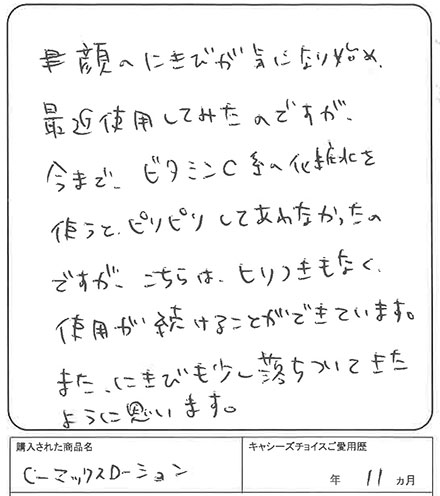 顔へにきびが気になり始め、
最近使用してみたのですが、
今まで、ビタミンC系の化粧水を
使うと、ピリピリしてあわなかったの
ですが、こちらは、ヒリつきもなく、
使用が続けることができています。
また、にきびも少し落ちついてきた
ように思います。
購入された商品名
Cーマックスローション
キャシーズチョイスご愛用歴
年 11 ヵ月